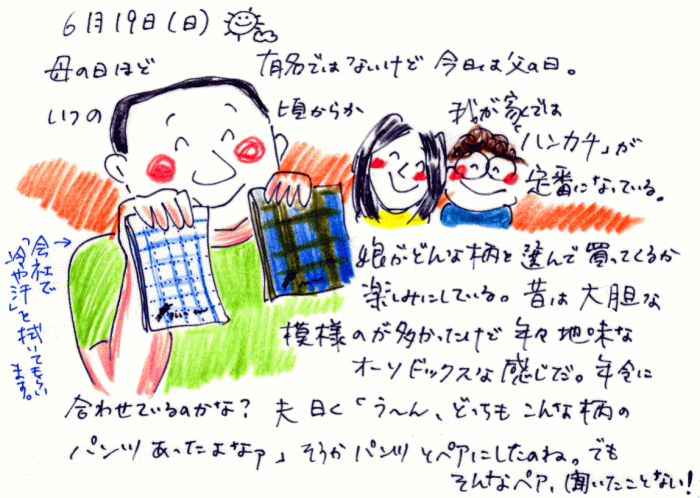 6月19日(日)
母の日ほど 有名ではないけど 今日は父の日。
いつの 頃からか 我が家では
「ハンカチ」が
定番になっている。
娘がどんな柄を選んで買ってくるか
楽しみにしている。昔は大胆な
模様のが多かったけど 年々地味な
オーソドックスな感じだ。年令に
合わせているのかな? 夫曰く「う〜ん、どっちもこんな柄の
パンツあったよなァ」そうかパンツとペアにしたのね。でも
そんなペア、聞いたことない!
→会社で
「冷や汗」を拭いてもらい
ます。